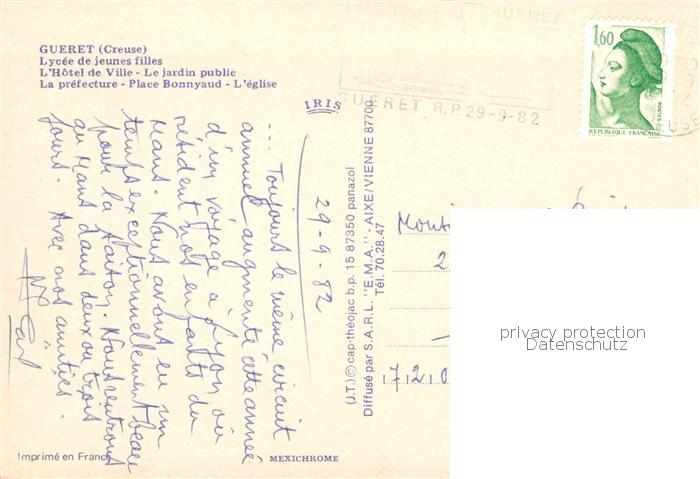 GUERET (Creuse)
Lycée de jeunes filles
L'Hôtel de Ville - Le jardin public
La préfecture - Place Bonnyaud - L'église
IRIS
GUERET
GUERET R.P. 29-9-82
1,60
POSTES
REPUBLIQUE FRANÇAISE
29-9-82
... Toujours le même circuit
annuel augmenté cette année
d'un voyage à Lyon où
résident nos enfants du
Mans. Nous avons eu un
temps exceptionnellement beau
pour la saison. Nous rentrons
au Mans dans deux ou trois
jours. Avec nos amitiés.
(J.T.) © cap-théojac b.p. 15 87350 panazol
Diffusé par S.A.R.L. "E.M.A." - AIXE/VIENNE 87700
Tél. 70.28.47
2
7 2 0
privacy protection
Datenschutz
Imprimé en France
MEXICHROME